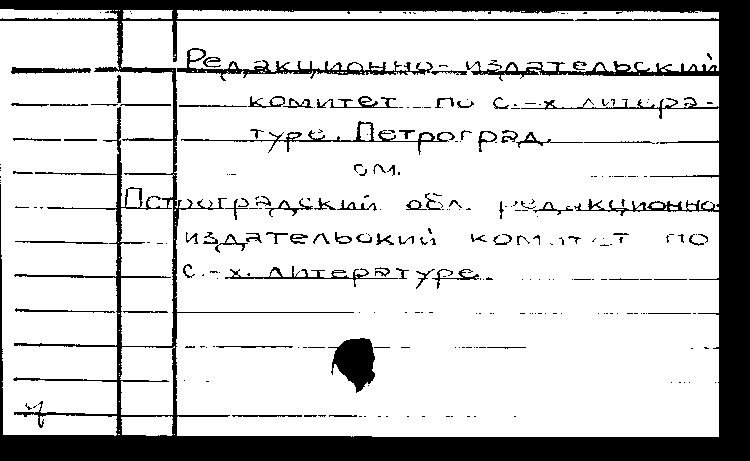 Редакционно-издательский
комитет по с.-х. литера-
туре. Петроград.
см.
Петроградский обл. редакционно-
издательский комитет по
с.-х. литературе.